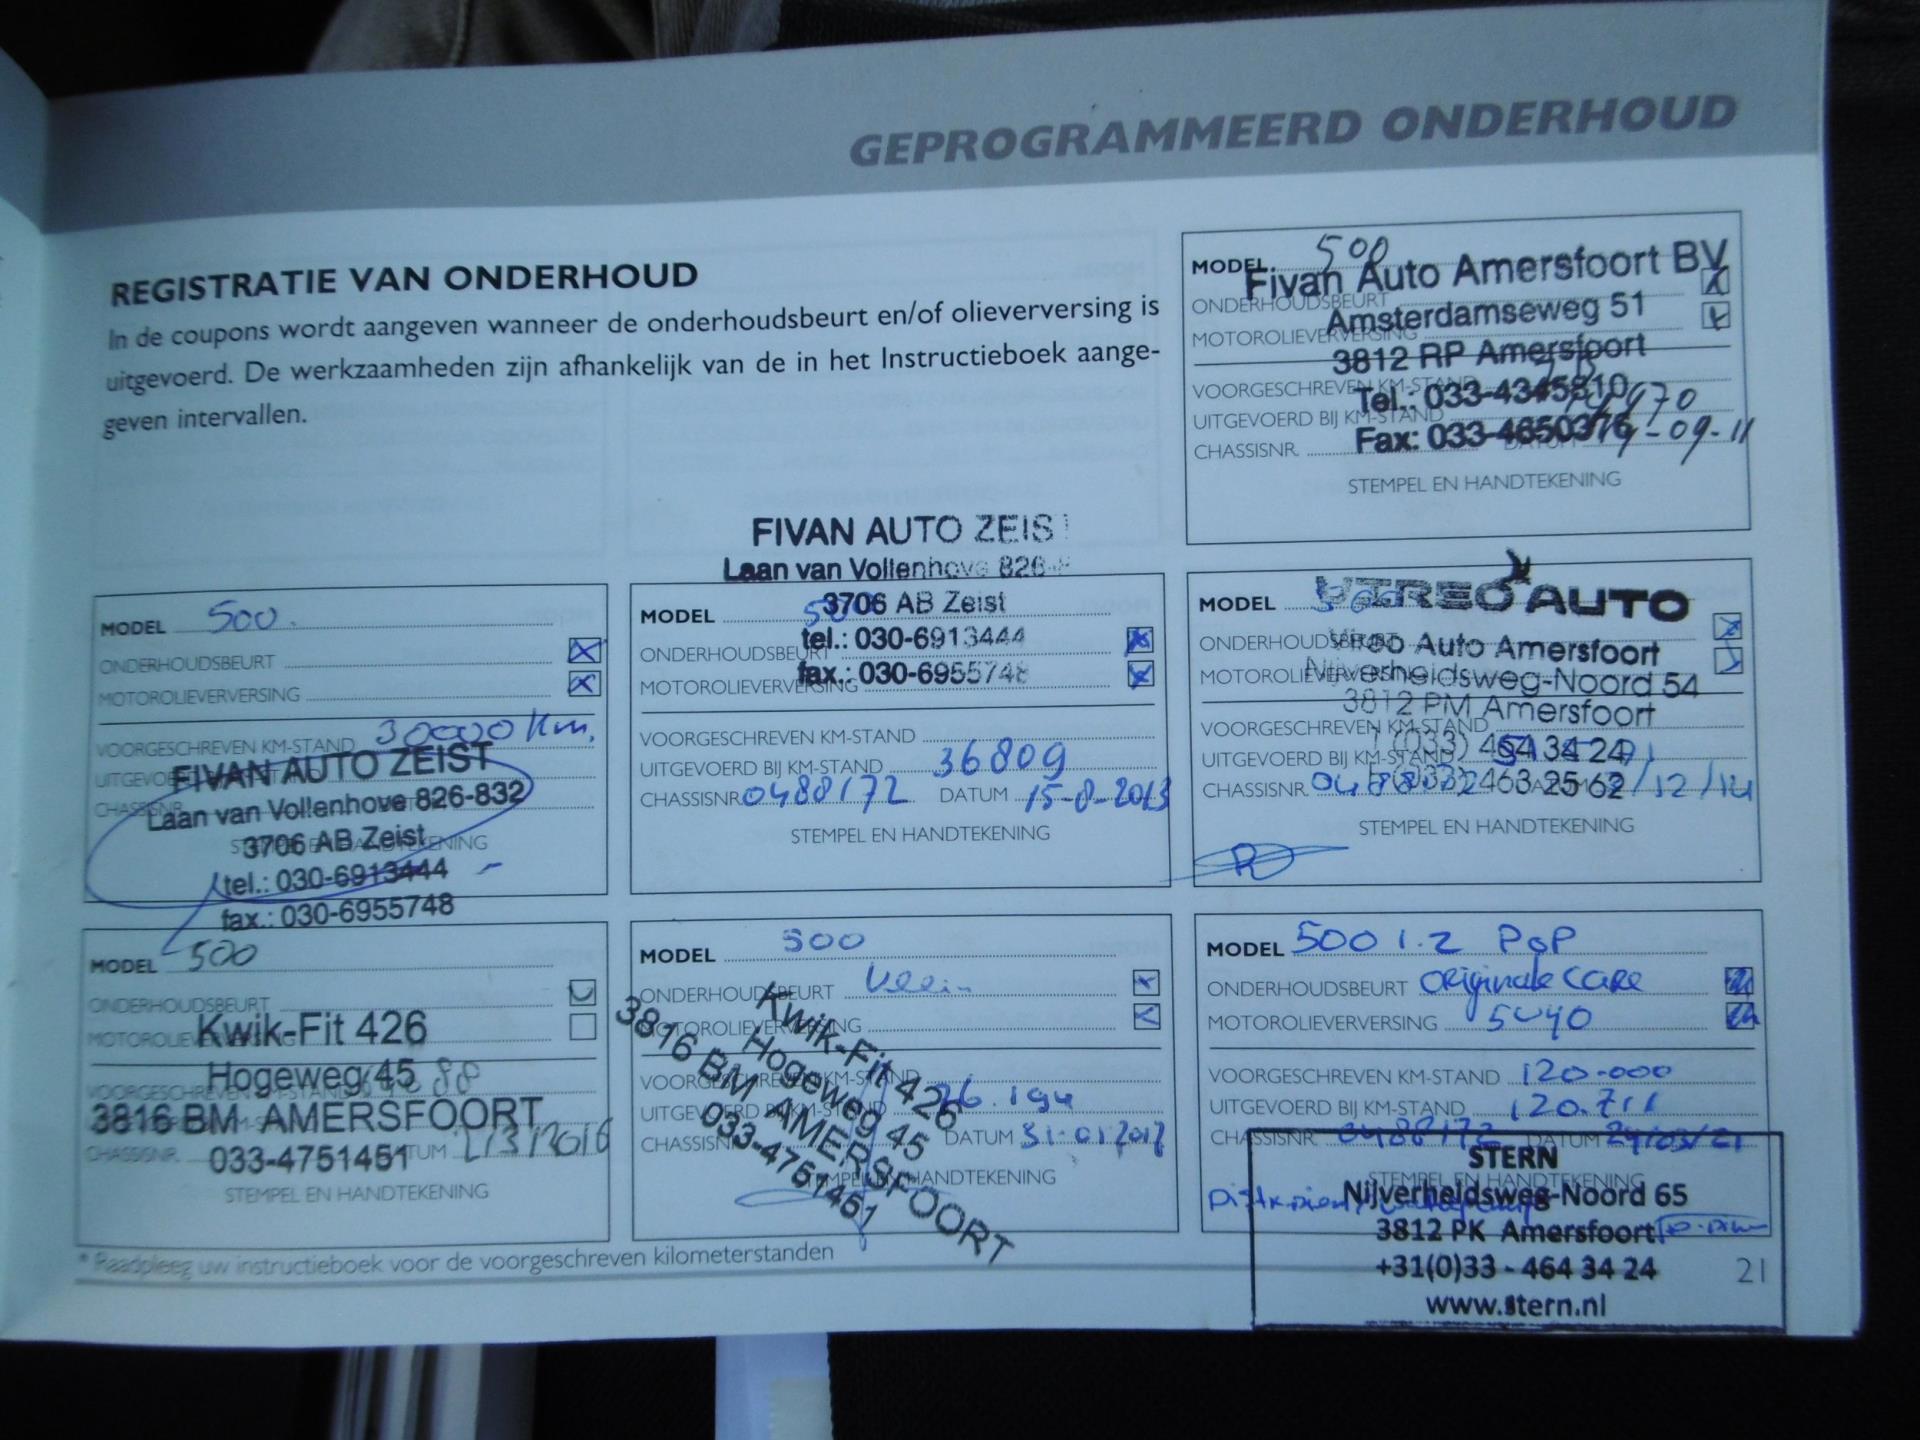 GEPROGRAMMEERD ONDERHOUD
REGISTRATIE VAN ONDERHOUD
In de coupons wordt aangeven wanneer de onderhoudsbeurt en/of olieverversing is
uitgevoerd. De werkzaamheden zijn afhankelijk van de in het Instructieboek aange-
geven intervallen.
MODEL 500
Fivan Auto Amersfoort BV
ONDERHOUDSBEURT
Amsterdamseweg 51
MOTOROLIEVERVERSING
3812 RP Amersfoort
VOORGESCHREVEN KM-STAND
Tel.: 033-4345810
UITGEVOERD BIJ KM-STAND
Fax: 033-4650376
CHASSISNR. -09-11
STEMPEL EN HANDTEKENING
MODEL 500.
ONDERHOUDSBEURT
MOTOROLIEVERVERSING
VOORGESCHREVEN KM-STAND 30000 Km.
FIVAN AUTO ZEIST
Laan van Vollenhove 826-832
CHASSISNR.
3706 AB Zeist
tel.: 030-6913444
fax.: 030-6955748
FIVAN AUTO ZEIST
Laan van Vollenhove 826-
3706 AB Zeist
MODEL 500
tel.: 030-6913444
ONDERHOUDSBEURT
fax.: 030-6955748
MOTOROLIEVERVERSING
VOORGESCHREVEN KM-STAND
UITGEVOERD BIJ KM-STAND 36809
CHASSISNR. 0488172 DATUM 15-8-2013
STEMPEL EN HANDTEKENING
VIREO AUTO
MODEL 500
ONDERHOUDSBEURT
Vireo Auto Amersfoort
MOTOROLIEVERVERSING
Nijverheidsweg-Noord 54
3812 PM Amersfoort
VOORGESCHREVEN KM-STAND
T (033) 464 34 24
UITGEVOERD BIJ KM-STAND
F (033) 463 25 62
CHASSISNR. 0488172 /12/14
STEMPEL EN HANDTEKENING
MODEL 500
ONDERHOUDSBEURT
Kwik-Fit 426
Hogeweg 45
3816 BM AMERSFOORT
033-4751451
CHASSISNR. DATUM 2/3/2016
STEMPEL EN HANDTEKENING
MODEL 500
ONDERHOUDSBEURT Klein
MOTOROLIEVERVERSING
Kwik-Fit 426
Hogeweg 45
3816 BM AMERSFOORT
033-4751451
VOORGESCHREVEN KM-STAND
UITGEVOERD BIJ KM-STAND
CHASSISNR. DATUM 31-01-2017
STEMPEL EN HANDTEKENING
MODEL 500 1.2 PoP
ONDERHOUDSBEURT Originale Care
MOTOROLIEVERVERSING 5W40
VOORGESCHREVEN KM-STAND 120.000
UITGEVOERD BIJ KM-STAND 120.711
CHASSISNR. 0488172 DATUM 24/03/21
STEMPEL EN HANDTEKENING
STERN
Nijverheidsweg-Noord 65
3812 PK Amersfoort
+31(0)33 - 464 34 24
www.stern.nl
* Raadpleeg uw instructieboek voor de voorgeschreven kilometerstanden
21